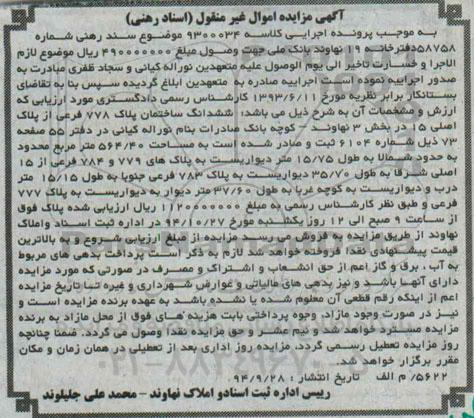 آگهی مزایده اموال غیر منقول (اسناد رهنی)
به موجب پرونده اجرایی کلاسه ۹۳۰۰۰۳۴ موضوع سند رهنی شماره
۵۸۷۵۸دفترخانه ۱۹ نهاوند بانک ملی جهت وصول مبلغ ۴۹۰۰۰۰۰۰۰ ریال موضوع لازم
الاجرا و خسارت تاخیر الی یوم الوصول علیه متعهدین نوراله کیانی و سجاد ظفری مبادرت به
صدور اجراییه نموده است اجراییه صادره به متعهدین ابلاغ گردیده سپس بنا به تقاضای
بستانکار برابر نظریه مورخ ۱۳۹۳/۶/۱۱ کارشناس رسمی دادگستری مورد ارزیابی که
ارزش و مشخصات آن به شرح ذیل می باشد: ششدانگ ساختمان پلاک ۷۷۸ فرعی از پلاک
اصلی ۱۵ در بخش ۳ نهاوند - کوچه بانک صادرات بنام نوراله کیانی در دفتر ۵۵ صفحه
۷۳ ذیل شماره ۶۱۰۴ ثبت و صادر شده است به مساحت ۵۶۴/۴۰ متر مربع محدود
به حدود شمالا به طول ۱۵/۷۵ متر دیواریست به پلاک های ۷۷۹ و ۷۸۴ فرعی از ۱۵
اصلی شرقا به طول ۳۵/۷۰ دیواریست به پلاک ۷۸۳ فرعی جنوبا به طول ۱۵/۱۵ متر
درب و دیواریست به کوچه غربا به طول ۳۷/۶۰ متر دیوار به دیواریست به پلاک ۷۷۷
فرعی و طبق نظر کارشناس رسمی به مبلغ ۱۱۲۰۰۰۰۰۰۰ ریال ارزیابی شده پلاک فوق
از ساعت ۹ صبح الی ۱۲ روز یکشنبه مورخ ۹۴/۱۰/۲۷ در اداره ثبت اسناد واملاک
نهاوند از طریق مزایده به فروش می رسد مزایده از مبلغ ارزیابی شروع و به بالاترین
قیمت پیشنهادی نقدا فروخته خواهد شد لازم به ذکر است پرداخت بدهی های مربوط
به آب ، برق و گاز اعم از حق انشعاب و اشتراک و مصرف در صورتی که مورد مزایده
دارای آنها باشد و نیز بدهی های مالیاتی و عوارض شهرداری و غیره تا تاریخ مزایده
اعم از اینکه رقم قطعی آن معلوم شده یا نشده باشد به عهده برنده مزایده است و
نیز در صورت وجود مازاد، وجوه پرداختی بابت هزینه های فوق از محل مازاد به برنده
مزایده مسترد خواهد شد و نیم عشر و حق مزایده نقدا وصول می گردد. ضمنا چنانچه
روز مزایده تعطیل رسمی گردد، مزایده روز اداری بعد از تعطیلی در همان زمان و مکان
مقرر برگزار خواهد شد.
۵۶۲۲/ م الف    تاریخ انتشار : ۹۴/۹/۲۸
رییس اداره ثبت اسنادو املاک نهاوند - محمد علی جلیلوند